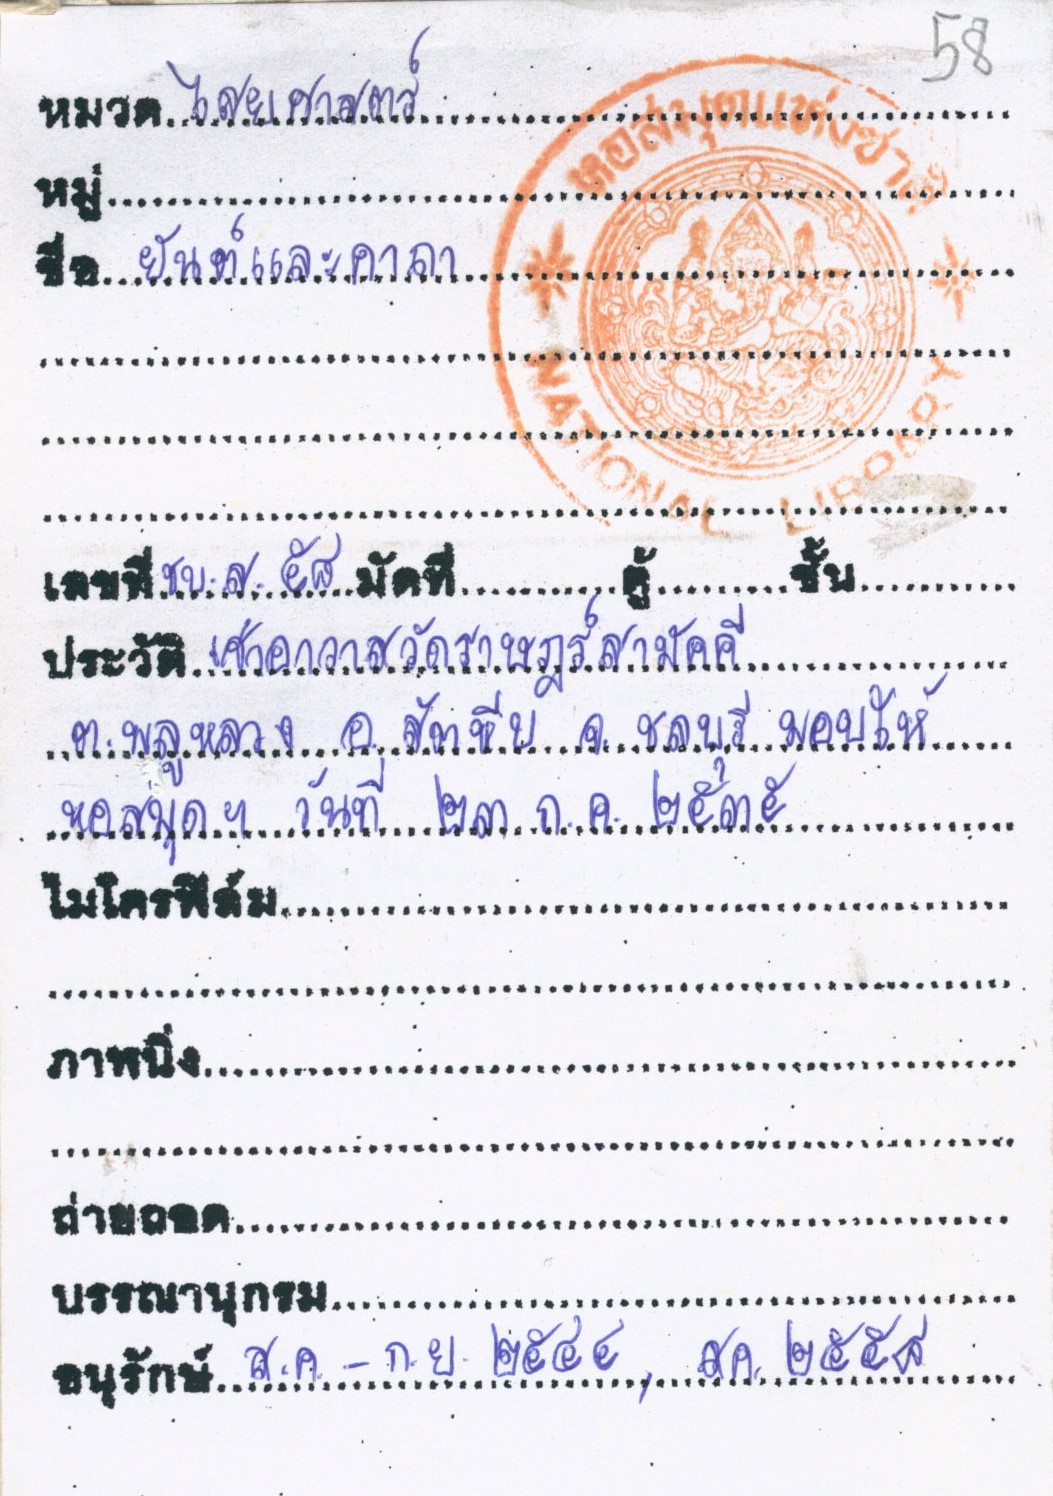 58
หมวด ไสยศาสตร์
หอสมุดแห่งชาติ
หมู่
ชื่อ ยันต์และคาถา
NATIONAL LIBRARY
เลขที่ ชบ.ส. ๕๘ มัดที่ ตู้ ชั้น
ประวัติ เจ้าอาวาสวัดราษฎร์สามัคคี
ต. พลูหลวง อ. สัตหีบ จ. ชลบุรี มอบให้
หอสมุดฯ วันที่ ๒๓ ก.ค. ๒๕๓๕
ไมโครฟิล์ม
ภาพนิ่ง
ถ่ายถอด
บรรณานุกรม
อนุรักษ์ ส.ค. – ก.ย. ๒๕๔๔ , สค. ๒๕๕๘